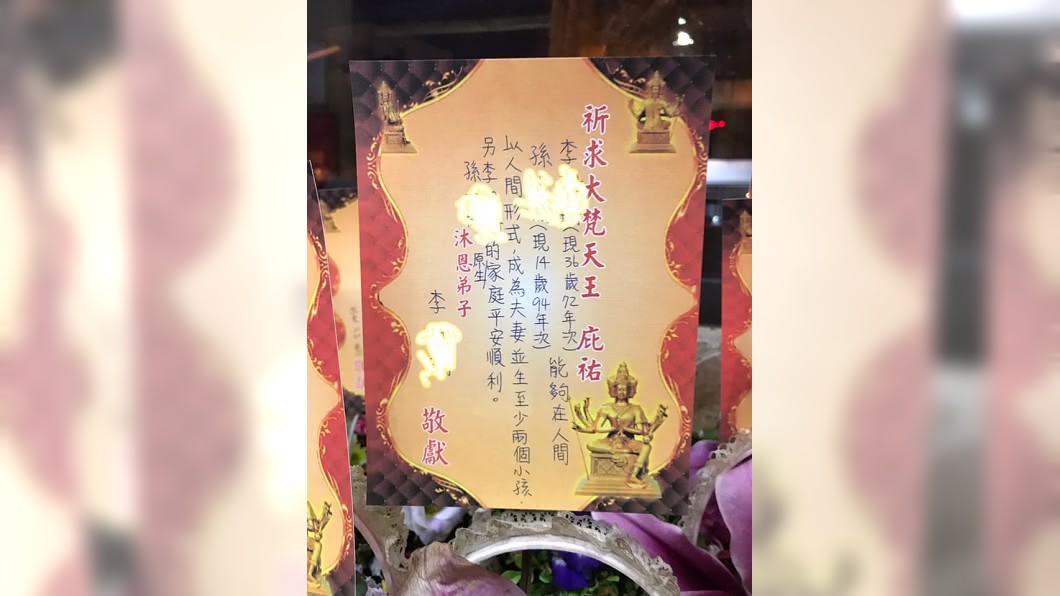 祈求大梵天王 庇祐
李（現36歲72年次）能夠在人間
孫（現14歲94年次）
以人間形式，成為夫妻並生至少兩個小孩，
另李的家庭平安順利。
孫 原生
沐恩弟子
李
敬獻